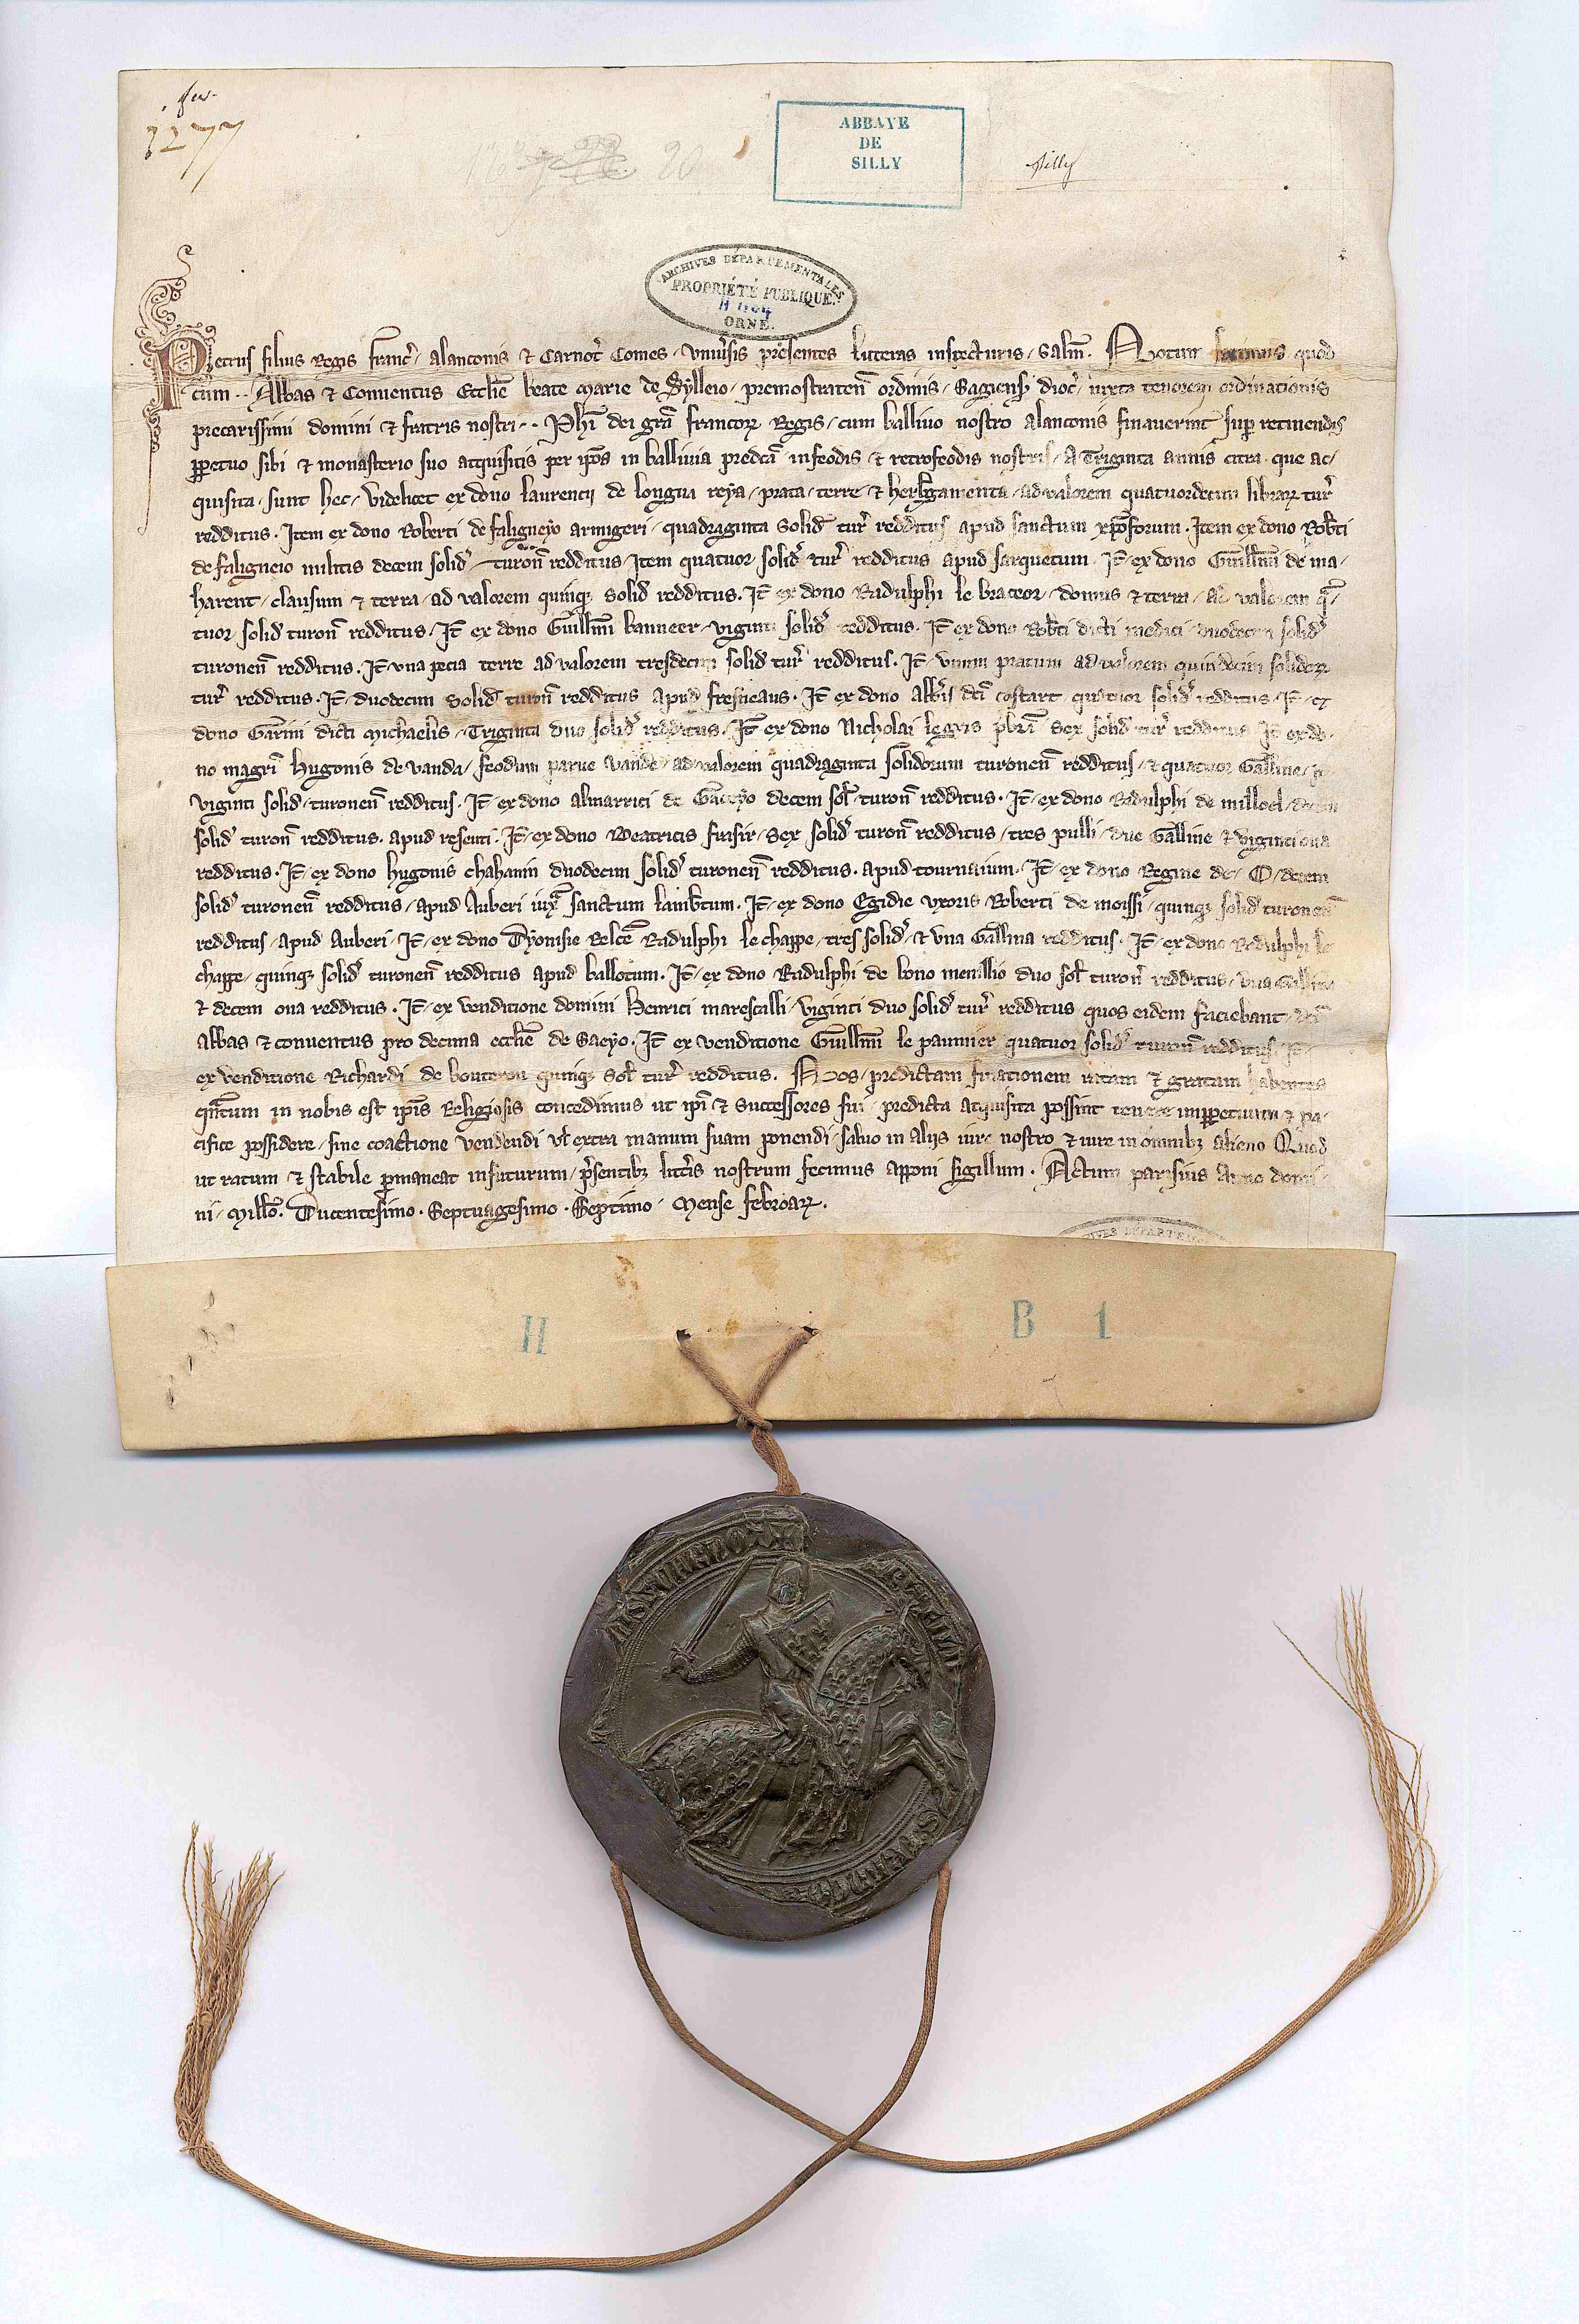 feu.
1277
20
ABBAYE
DE
SILLY
Silly
ARCHIVES DÉPARTEMENTALES
PROPRIÉTÉ PUBLIQUE
ORNE.
Petrus filius Regis franc̄ / alanconis & Carnot̄ Comes / Vniu̾sis presentes litteras inspecturis / Salm̄. Notum facimus quod
cum .. Abbas & Conuentus Eccl̄ie beate marie de Sylleio / premostraten̄ ordinis / Sagiensȷ dioc̄ / iuxta tenorem ordinationis
precarissimi domini & fratris nostri .. Ph̄i dei grā francorꝝ Regis / cum balliuo nostro alanconis finauerint suꝑ retinendis
ꝑpetuo sibi & monasterio suo acquisitis per ip̄os in balliuia predcā infeodis & retrofeodis nostris / a Triginta annis citra / que ac/
quisita sunt hec / Videlicet ex dono laurencij de longua reya / prata / terre & herbgamenta / ad valorem quatuordecim librarꝝ tur̄
redditus . Item ex dono Roberti de faligneyo armigeri / quadraginta Solid̄ tur̄ redditus apud sanctum xp̄oforum . Item ex dono Rob̄ti
de faligneio militis decem solid̄ turon̄ redditus / Item quatuor solid̄ tur̄ redditus apud sarquetum . It̄ ex dono Guill̄mi de ma/
harent / clausum & terra / ad valorem quinqꝫ solid̄ redditus . It̄ ex dono Radulphi le braceor / domus & terra / ad valorem qᵃ/
tuor solid̄ turon̄ redditus / It̄ ex dono Guill̄mi banneer / viginti solid̄ redditus . It̄ ex dono Rob̄ti dicti medici / duodecim solid̄
turonen̄ redditus . It̄ vna pecia terre ad valorem tresdecim solid̄ tur̄ redditus . It̄ vnum pratum ad valorem quindecim solidorꝝ
tur̄ redditus . It̄ duodecim Solid̄ turon̄ redditus apud fresneaus . It̄ ex dono dcī costart quatuor solid̄ redditus . It̄ / ex
dono Garini dicti Michaelis / Triginta duo solid̄ redditus . It̄ ex dono Nicholai legris pbrī Sex solid̄ tur̄ redditus It̄ ex do/
no magrī hugonis de vanda / feodum parue vande / ad valorem quadraginta solidorum turonen̄ redditus / & quatuor Galline /
viginti solid̄ / turonen̄ redditus . It̄ ex dono almarrici de Gaceyo decem sol̄ turon̄ redditus . It̄ / ex dono Radulphi de milloel / decem
solid̄ turon̄ redditus . apud resenti . It̄ / ex dono Beatricis frisir / Sex solid̄ turon̄ redditus / tres pulli / due Galline & viginti oua
redditus . It̄ / ex dono hugonis chahanin duodecim solid̄ turonen̄ redditus . apud tournaium . It̄ / ex dono Regine de / O / decem
solid̄ turonen̄ redditus / apud Auberi iuxᵃ sanctum lamb̄tum . It̄ / ex dono Egidie vxoris Roberti de moissi / quinqꝫ solid̄ turonen̄
redditus / apud Auberi / It̄ / ex dono Dyonisie Relcē Radulphi le chappe / tres solid̄ / & vna Gallina redditus . It̄ / ex dono Radulphi le
chappe / quinqꝫ solid̄ turonen̄ redditus apud ballotum . It̄ / ex dono Radulphi de bono menillio duo sol̄ turon̄ redditus / vna Gallina
& decem oua redditus . It̄ / ex venditione domini henrici marescalli / viginti duo solid̄ tur̄ redditus quos eidem faciebant / dcī
abbas & conuentus pro decima eccl̄ie de Saeyo . It̄ ex venditione Guill̄mi le paumier quatuor solid̄ turon̄ redditus . It̄ /
ex venditione Richardi de bouteron quinqꝫ sol̄ tur̄ redditus . Nos / predictam finationem ratam & gratam habentes
qn̄tum in nobis est ip̄is Religiosis concedimus ut ip̄i & Successores sui / predicta acquisita possint tenere imꝑpetuum & pa/
cifice possidere / sine coactione vendendi ul̄ extra manum suam ponendi / saluo in alijs iure nostro & iure in omnibꝫ alieno Quod
ut ratum & stabile ꝑmaneat infuturum / p̄sentibꝫ litt̄is nostrum fecimus apponi sigillum . Actum parisius Anno domi/
ni / Mill̄o . Ducentesimo . Septuagesimo . Septimo / Mense februarꝝ .
H B 1